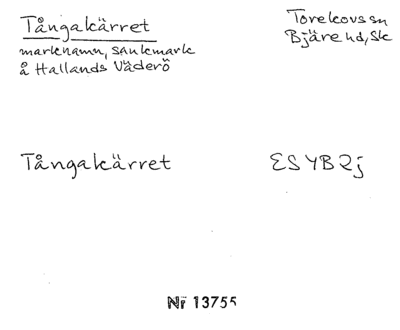 Tångakärret
marknamn, sankmark
å Hallands Väderö
Torekovs sn
Bjäre hd, Sk
Tångakärret
ESYB2j
Nr 13755